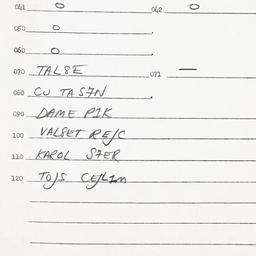 041 0 042 0
050 0
060 0
070 TALSE 071 —
080 CU TAS7N
090 DAME P1K
100 VALSET REJC
110 KAROL S7ER
120 TOJS